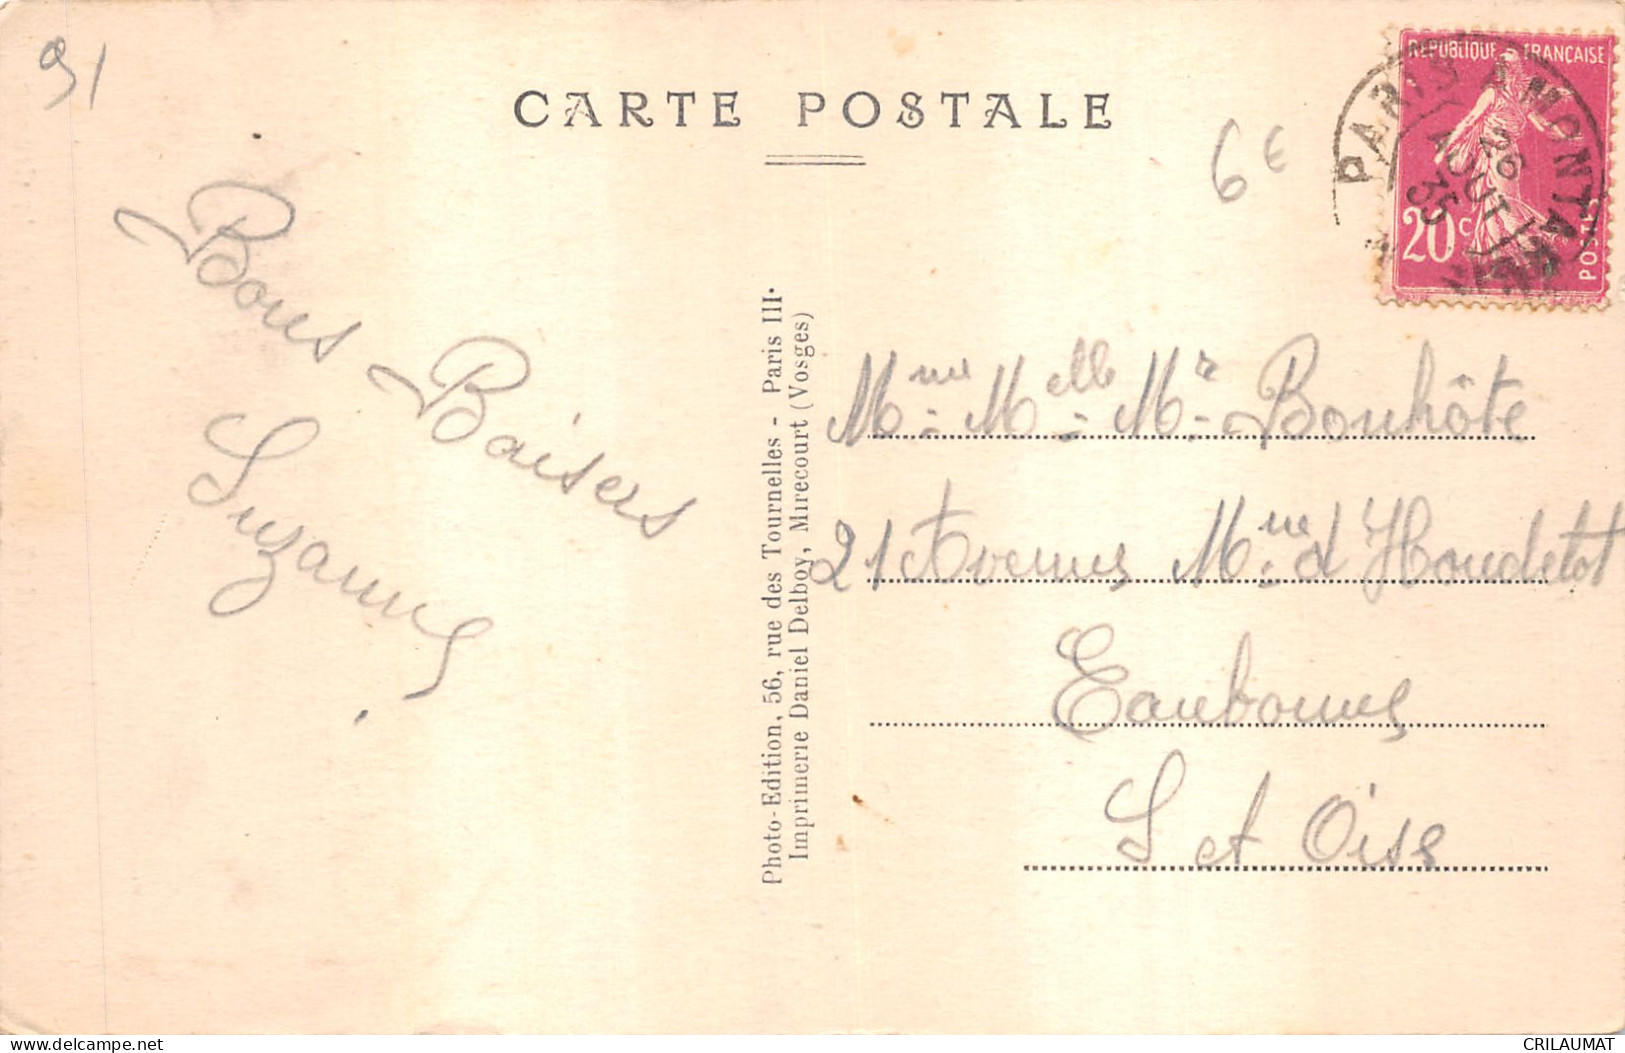 91
CARTE POSTALE
6€
REPUBLIQUE FRANÇAISE
20c
POSTES
PARIS A MONTAR
26
AOUT
35
Bons Baisers
Suzanne
Photo-Edition, 56, rue des Tournelles - Paris III.
Imprimerie Daniel Delboy, Mirecourt (Vosges)
Mme Melle Mr Bonhôte
21 Avenue Mme d'Houdetot
Eaubonne
S et Oise
delcampe.net
CRILAUMAT